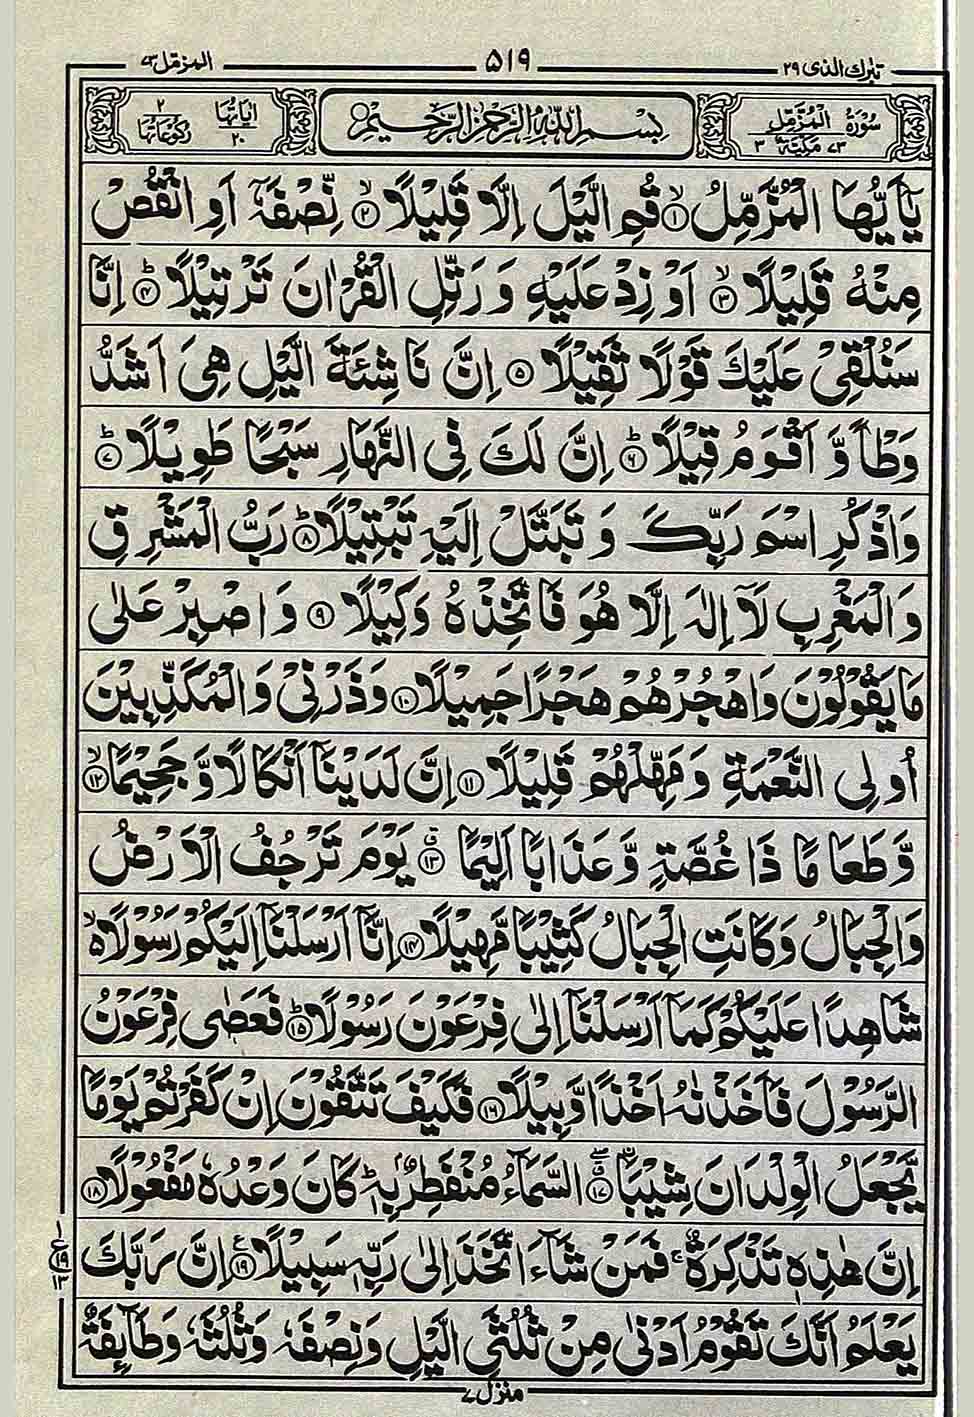 تبٰرك الذی ۲۹
۵۱۹
المزمل ۷۳
سُوْرَةُ الْمُزَّمِّلِ
۷۳ مَكِّيَّةٌ ۳
بِسْمِ اللّٰهِ الرَّحْمٰنِ الرَّحِيْمِ
اٰيَاتُهَا ۲۰
۲ رُكُوْعَاتُهَا
يٰۤاَيُّهَا الْمُزَّمِّلُۙ‏﴿۱﴾ قُمِ الَّيْلَ اِلَّا قَلِيْلًاۙ‏﴿۲﴾ نِّصْفَهٗۤ اَوِ انْقُصْ
مِنْهُ قَلِيْلًاۙ‏﴿۳﴾ اَوْ زِدْ عَلَيْهِ وَرَتِّلِ الْقُرْاٰنَ تَرْتِيْلًاؕ‏﴿۴﴾ اِنَّا
سَنُلْقِىْ عَلَيْكَ قَوْلًا ثَقِيْلًا‏﴿۵﴾ اِنَّ نَاشِئَةَ الَّيْلِ هِىَ اَشَدُّ
وَطْاً وَّاَقْوَمُ قِيْلًاؕ‏﴿۶﴾ اِنَّ لَكَ فِى النَّهَارِ سَبْحًا طَوِيْلًاؕ‏﴿۷﴾
وَاذْكُرِ اسْمَ رَبِّكَ وَتَبَتَّلْ اِلَيْهِ تَبْتِيْلًاؕ‏﴿۸﴾ رَبُّ الْمَشْرِقِ
وَالْمَغْرِبِ لَاۤ اِلٰهَ اِلَّا هُوَ فَاتَّخِذْهُ وَكِيْلًا‏﴿۹﴾ وَاصْبِرْ عَلٰى
مَا يَقُوْلُوْنَ وَاهْجُرْهُمْ هَجْرًا جَمِيْلًا‏﴿۱۰﴾ وَذَرْنِىْ وَالْمُكَذِّبِيْنَ
اُولِى النَّعْمَةِ وَمَهِّلْهُمْ قَلِيْلًا‏﴿۱۱﴾ اِنَّ لَدَيْنَاۤ اَنْكَالًا وَّجَحِيْمًاۙ‏﴿۱۲﴾
وَّطَعَامًا ذَا غُصَّةٍ وَّعَذَابًا اَلِيْمًاۗ‏﴿۱۳﴾ يَوْمَ تَرْجُفُ الْاَرْضُ
وَالْجِبَالُ وَكَانَتِ الْجِبَالُ كَثِيْبًا مَّهِيْلًا‏﴿۱۴﴾ اِنَّاۤ اَرْسَلْنَاۤ اِلَيْكُمْ رَسُوْلًا ۙ
شَاهِدًا عَلَيْكُمْ كَمَاۤ اَرْسَلْنَاۤ اِلٰى فِرْعَوْنَ رَسُوْلًاؕ‏﴿۱۵﴾ فَعَصٰى فِرْعَوْنُ
الرَّسُوْلَ فَاَخَذْنٰهُ اَخْذًا وَّبِيْلًا‏﴿۱۶﴾ فَكَيْفَ تَتَّقُوْنَ اِنْ كَفَرْتُمْ يَوْمًا
يَّجْعَلُ الْوِلْدَانَ شِيْبَا‏﴿۱۷﴾ السَّمَآءُ مُنْفَطِرٌۢ بِهٖؕ كَانَ وَعْدُهٗ مَفْعُوْلًا‏﴿۱۸﴾
اِنَّ هٰذِهٖ تَذْكِرَةٌ ۚ فَمَنْ شَآءَ اتَّخَذَ اِلٰى رَبِّهٖ سَبِيْلًا‏﴿۱۹﴾ اِنَّ رَبَّكَ
۱
ع ۱۹
۱۳
يَعْلَمُ اَنَّكَ تَقُوْمُ اَدْنٰى مِنْ ثُلُثَىِ الَّيْلِ وَنِصْفَهٗ وَثُلُثَهٗ وَطَآئِفَةٌ
منزل ۷